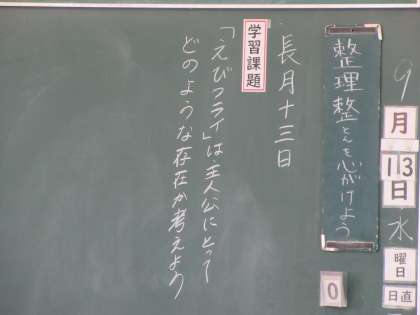 9
月
13
日
水
曜日
日直
整理整とんを心がけよう
0
長月十三日
学習課題
「えびフライ」は、主人公にとって
どのような存在か考えよう